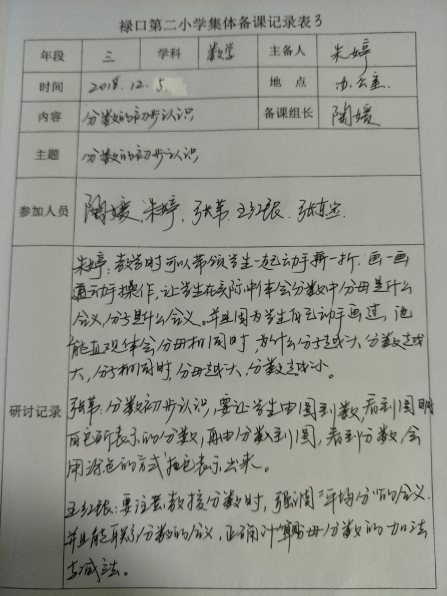 禄口第二小学集体备课记录表3
年段 三 学科 数学 主备人 朱婷
时间 2018.12.5. 地点 办公室
内容 分数的初步认识 备课组长 陶媛
主题 分数的初步认识
参加人员 陶媛、朱婷、张蒂、王红银、张
研讨记录
朱婷:教学时可以带领学生一起动手折一折,画一画
通过动手操作,让学生在实际中体会分数中分母是什么
含义,分子是什么含义。并且因为学生自己动手画过,也
能直观体会分母相同时,为什么分子越大,分数越
大,分子相同时,分母越大,分数越小。
张蒂:分数初步认识,要让学生由图到数,看到图明
白它所表示的分数,再由分数到图,看到分数,会
用涂色的方式把它表示出来。
王红银:要注意教授分数时,强调"平均分"的含义,
并且能联系分数的含义,正确计算同分母分数的加法
与减法。